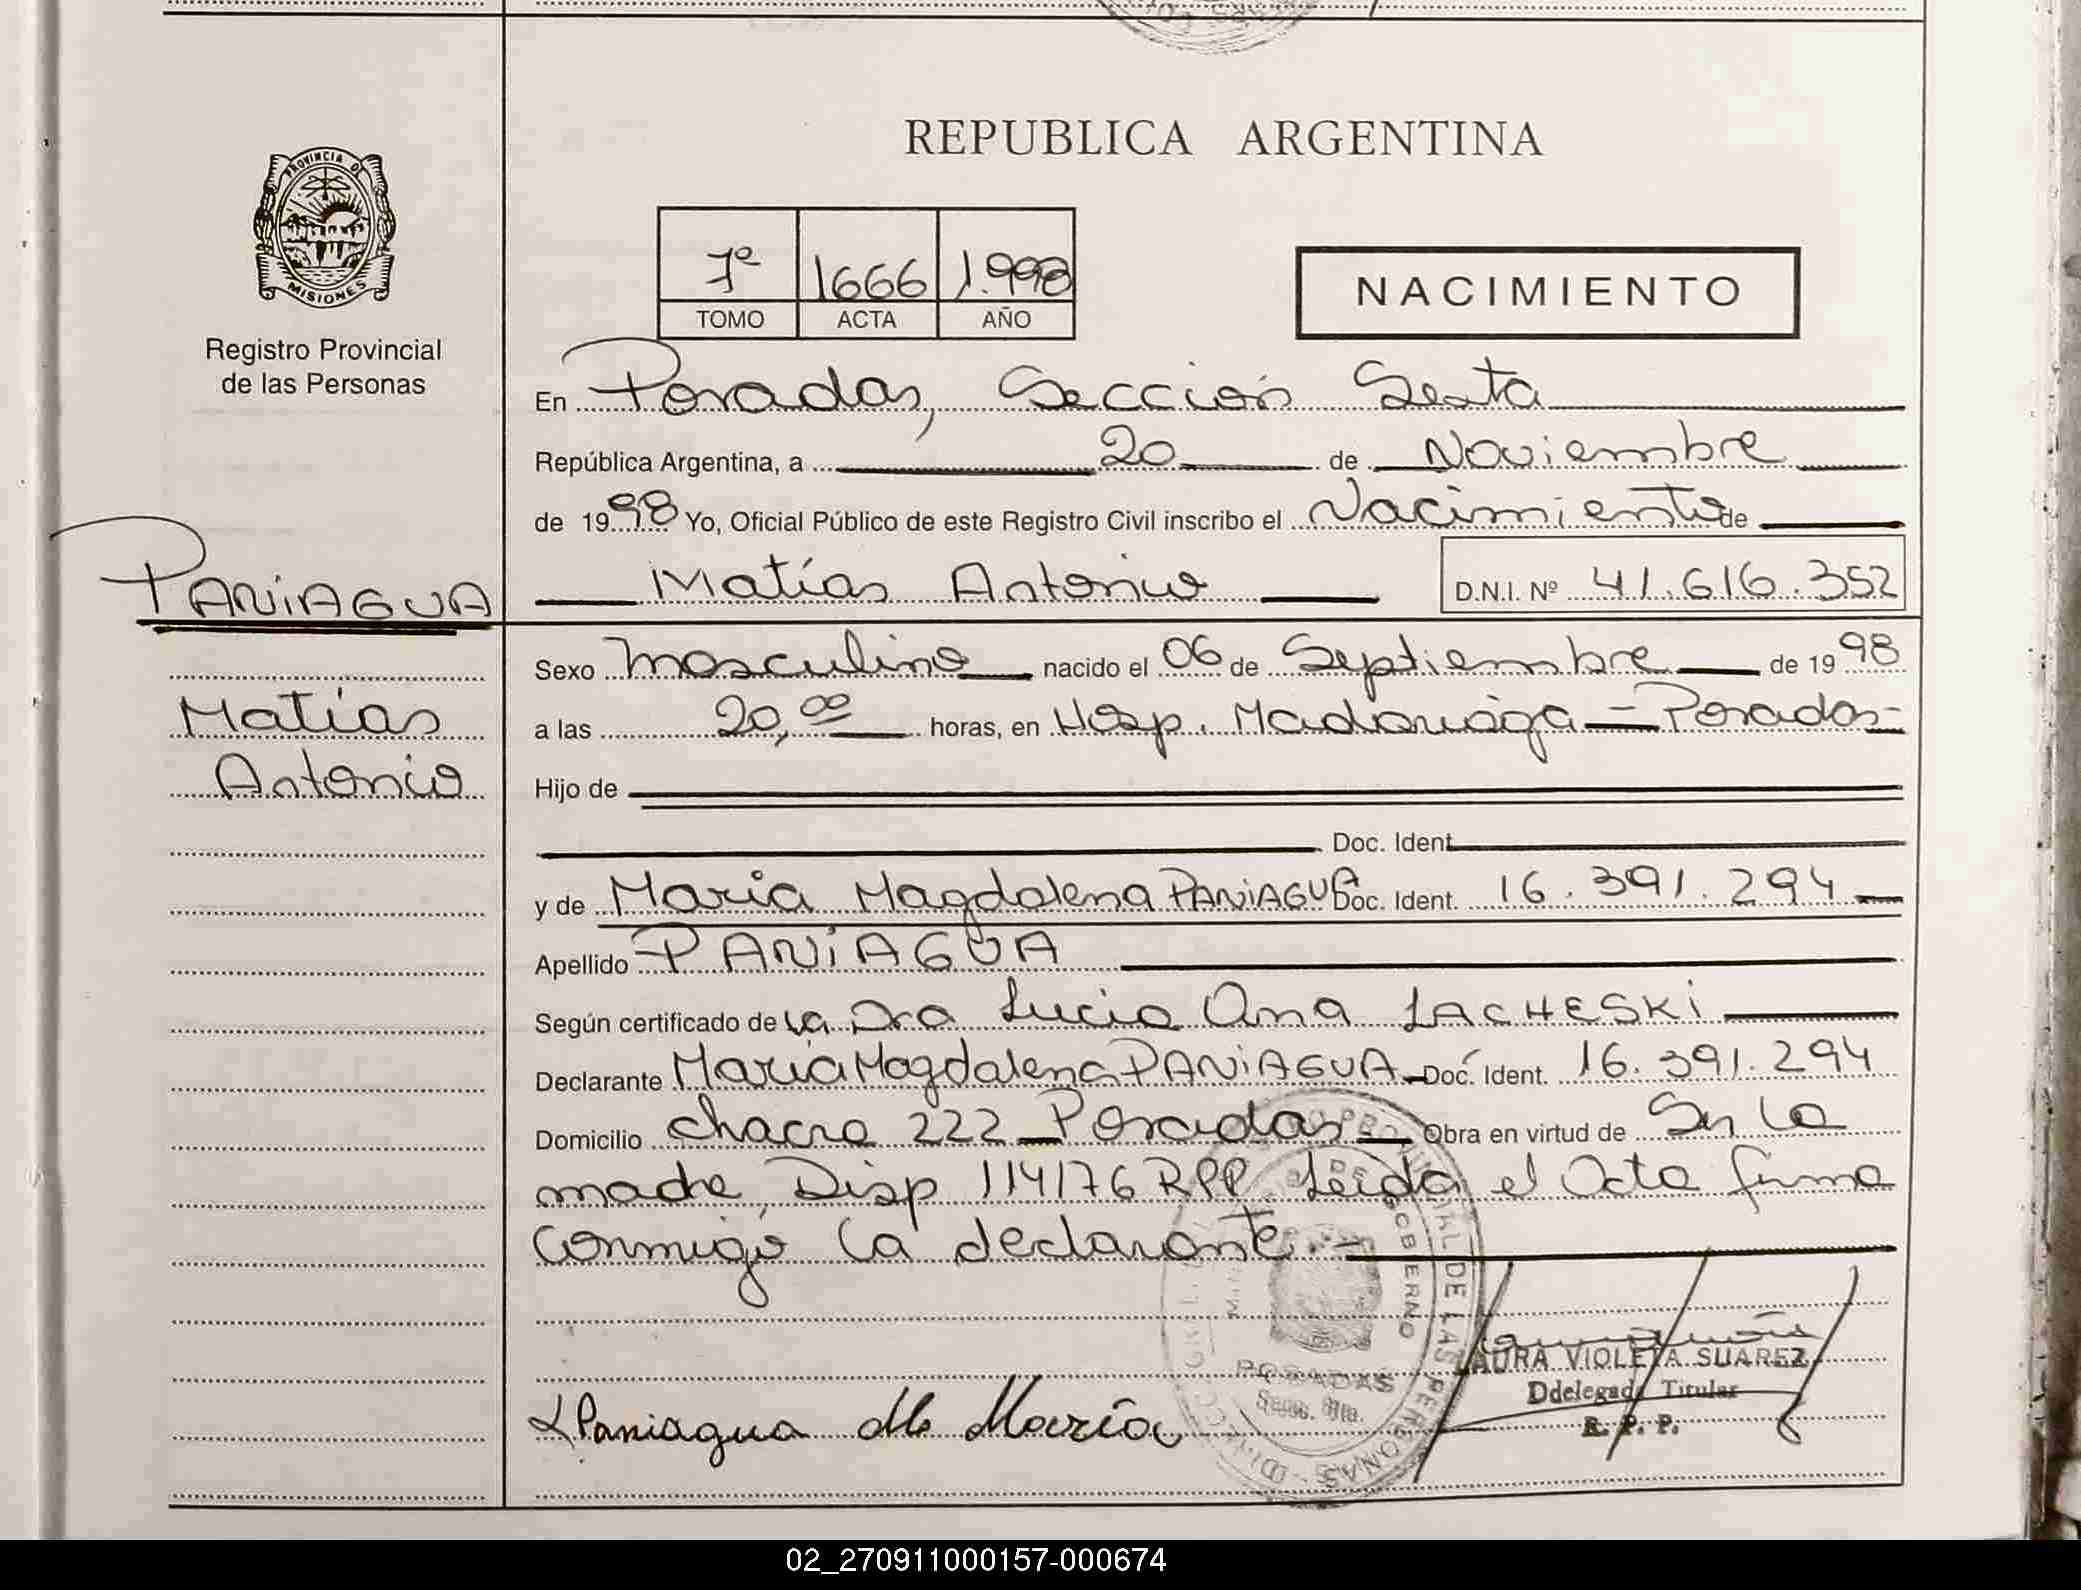 REPUBLICA ARGENTINA
PROVINCIA DE
MISIONES
Registro Provincial
de las Personas
7º 1666 1.998
TOMO ACTA AÑO
NACIMIENTO
En Posadas, Sección Sexta
República Argentina, a 20 de Noviembre
de 1998 Yo, Oficial Público de este Registro Civil inscribo el Nacimiento de
PANIAGUA
Matías Antonio D.N.I. Nº 41.616.352
Matías
Antonio
Sexo Masculino nacido el 06 de Septiembre de 1998
a las 20,00 horas, en Hosp. Madariaga - Posadas-
Hijo de
Doc. Ident.
y de Maria Magdalena PANIAGUA Doc. Ident. 16.391.294
Apellido PANIAGUA
Según certificado de La Dra Lucia Ana LACHESKI
Declarante Maria Magdalena PANIAGUA Doc. Ident. 16.391.294
Domicilio chacra 222 Posadas Obra en virtud de Ser la
madre Disp 114/76 RPP. Leida el Acta firma
conmigo la declarante.-
LAURA VIOLETA SUAREZ
Ddelegada Titular
R. P. P.
POSADAS
Secc. 6ta.
Paniagua M María
02_270911000157-000674